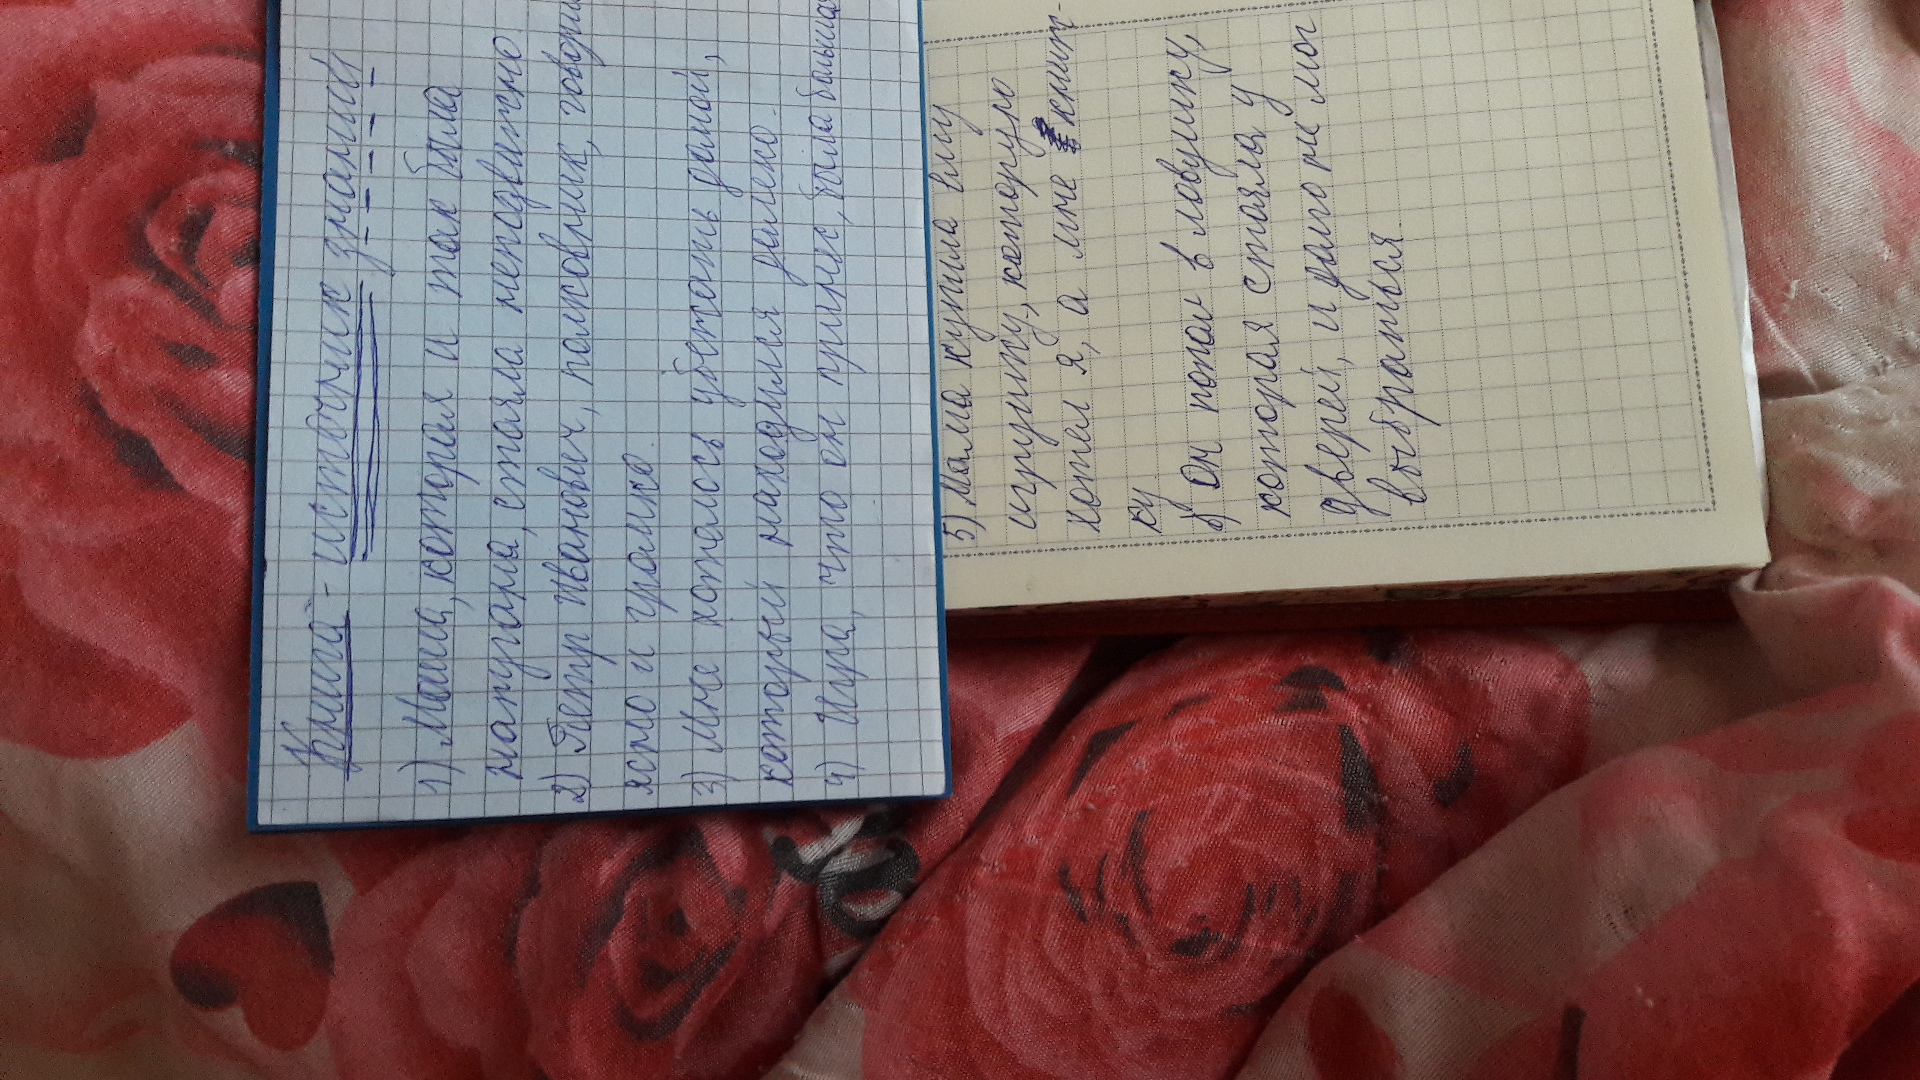 Книга - источник знаний
1) Маша, которая и так была
напугана, стояла неподвижно
2) Петр Иванович, полковник, говорил
ясно и громко
3) Мне хотелось убежать домой,
который находился далеко.
4) Игра, что он принес, была большая
5) Мама купила ему
игрушку, которую
хотел я, а мне книж-
ку
6) Он попал в ловушку,
которая стояла у
дверей, и долго не мог
выбраться